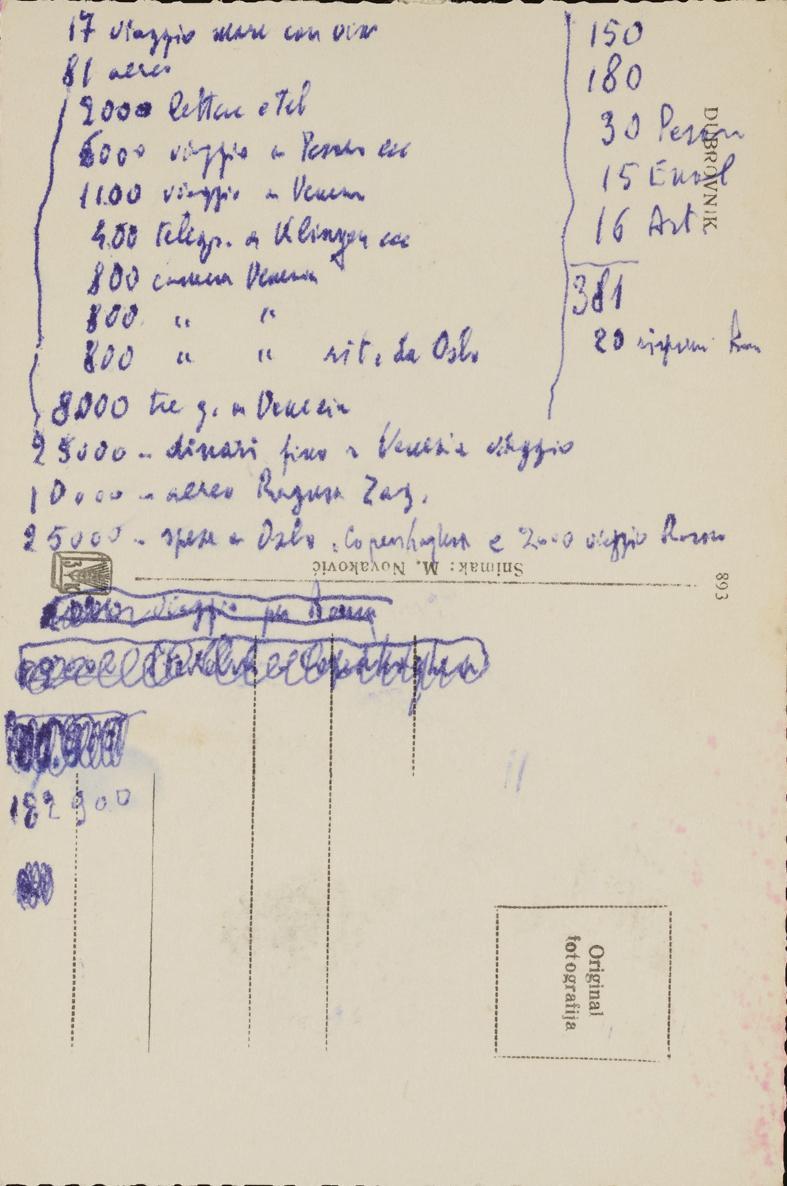 17 viaggio mare con
81 aereo
2000 lettere e tel
6000 viaggio a
1100 viaggio a Venezia
400 telegr. a Klingen ecc
800 camera Venezia
800 " "
800 " " rit. da Oslo
8000 tre g. a Venezia
25000 - dinari fino a Venezia viaggio
10000 - aereo Ragusa Zag.
25000 - spese a Oslo, Copenhaghen e 2000 viaggio
viaggio per
182900
150
180
30
15
16 Art.
381
20
DUBROVNIK
Snimak: M. Novaković
893
Original
fotografija